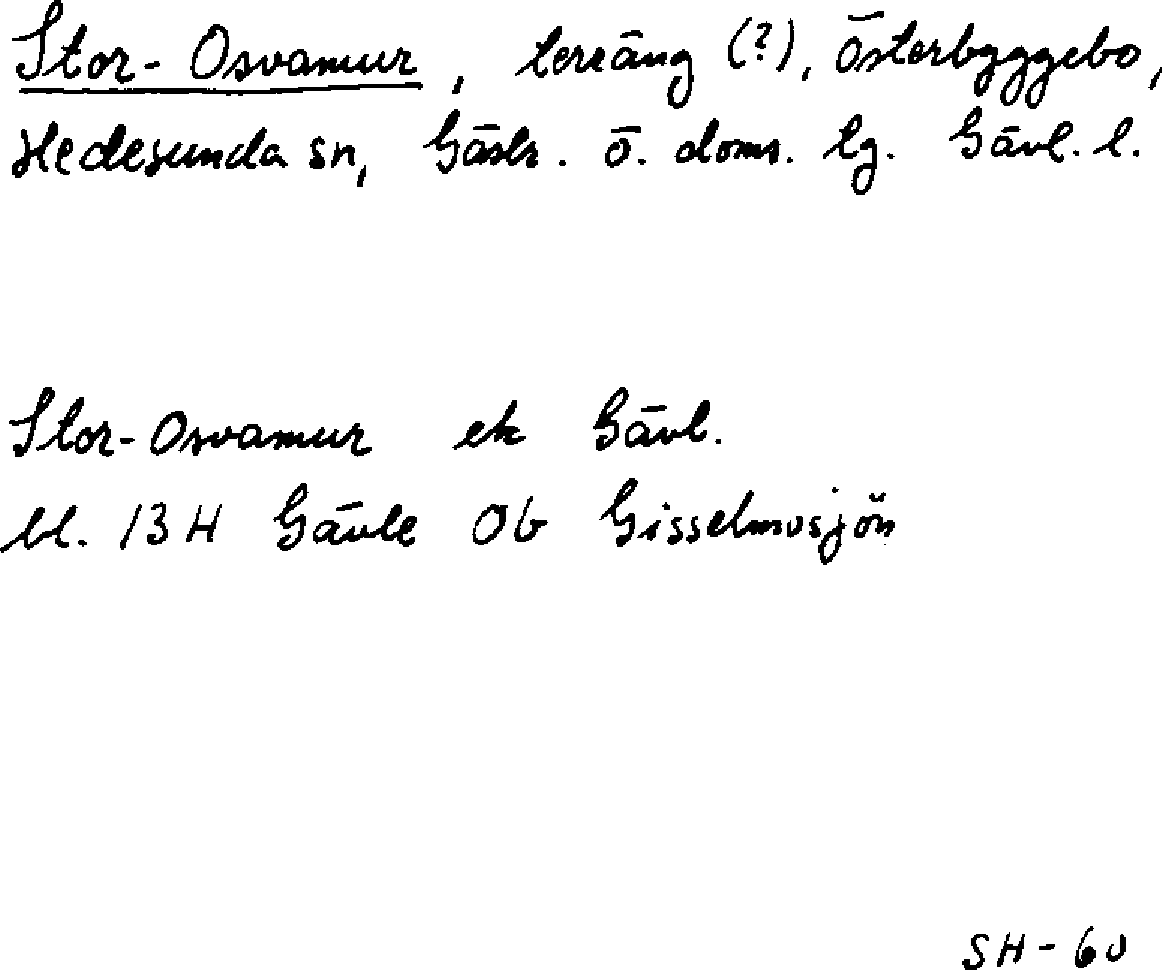 Stor-Osvamur, terräng (?), Österbyggebo,
Hedesunda sn, Gästr. ö. doms. lg. Gävl. l.
Stor-Osvamur ek Gävl.
bl. 13H Gävle 0b Gisselmosjön
SH-60